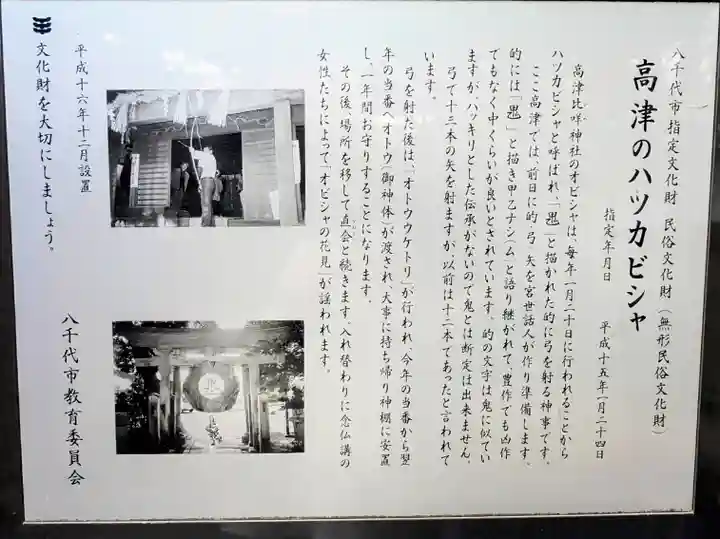 八千代市指定文化財 民俗文化財(無形民俗文化財)
高津のハツカビシャ
指定年月日 平成十五年一月二十四日
高津比咩神社のオビシャは、毎年一月二十日に行われることから
ハツカビシャと呼ばれ、「」と描かれた的に弓を射る神事です。
ここ高津では、前日に的・弓・矢を宮世話人が作り準備します。
的には「」と描き甲乙ナシ(ム)と語り継がれて、豊作でも凶作
でもなく中くらいが良いとされています。的の文字は鬼に似てい
ますが、ハッキリとした伝承がないので鬼とは断定は出来ません。
弓で十三本の矢を射ますが、以前は十二本であったと言われて
います。
弓を射た後は、「オトウウケトリ」が行われ、今年の当番から翌
年の当番へオトウ(御神体)が渡され、大事に持ち帰り神棚に安置
し、一年間お守りすることになります。
その後、場所を移して直会と続きます。入れ替わりに念仏講の
女性たちによって「オビシャの花見」が謡われます。
平成十六年十二月設置
文化財を大切にしましょう。
八千代市教育委員会